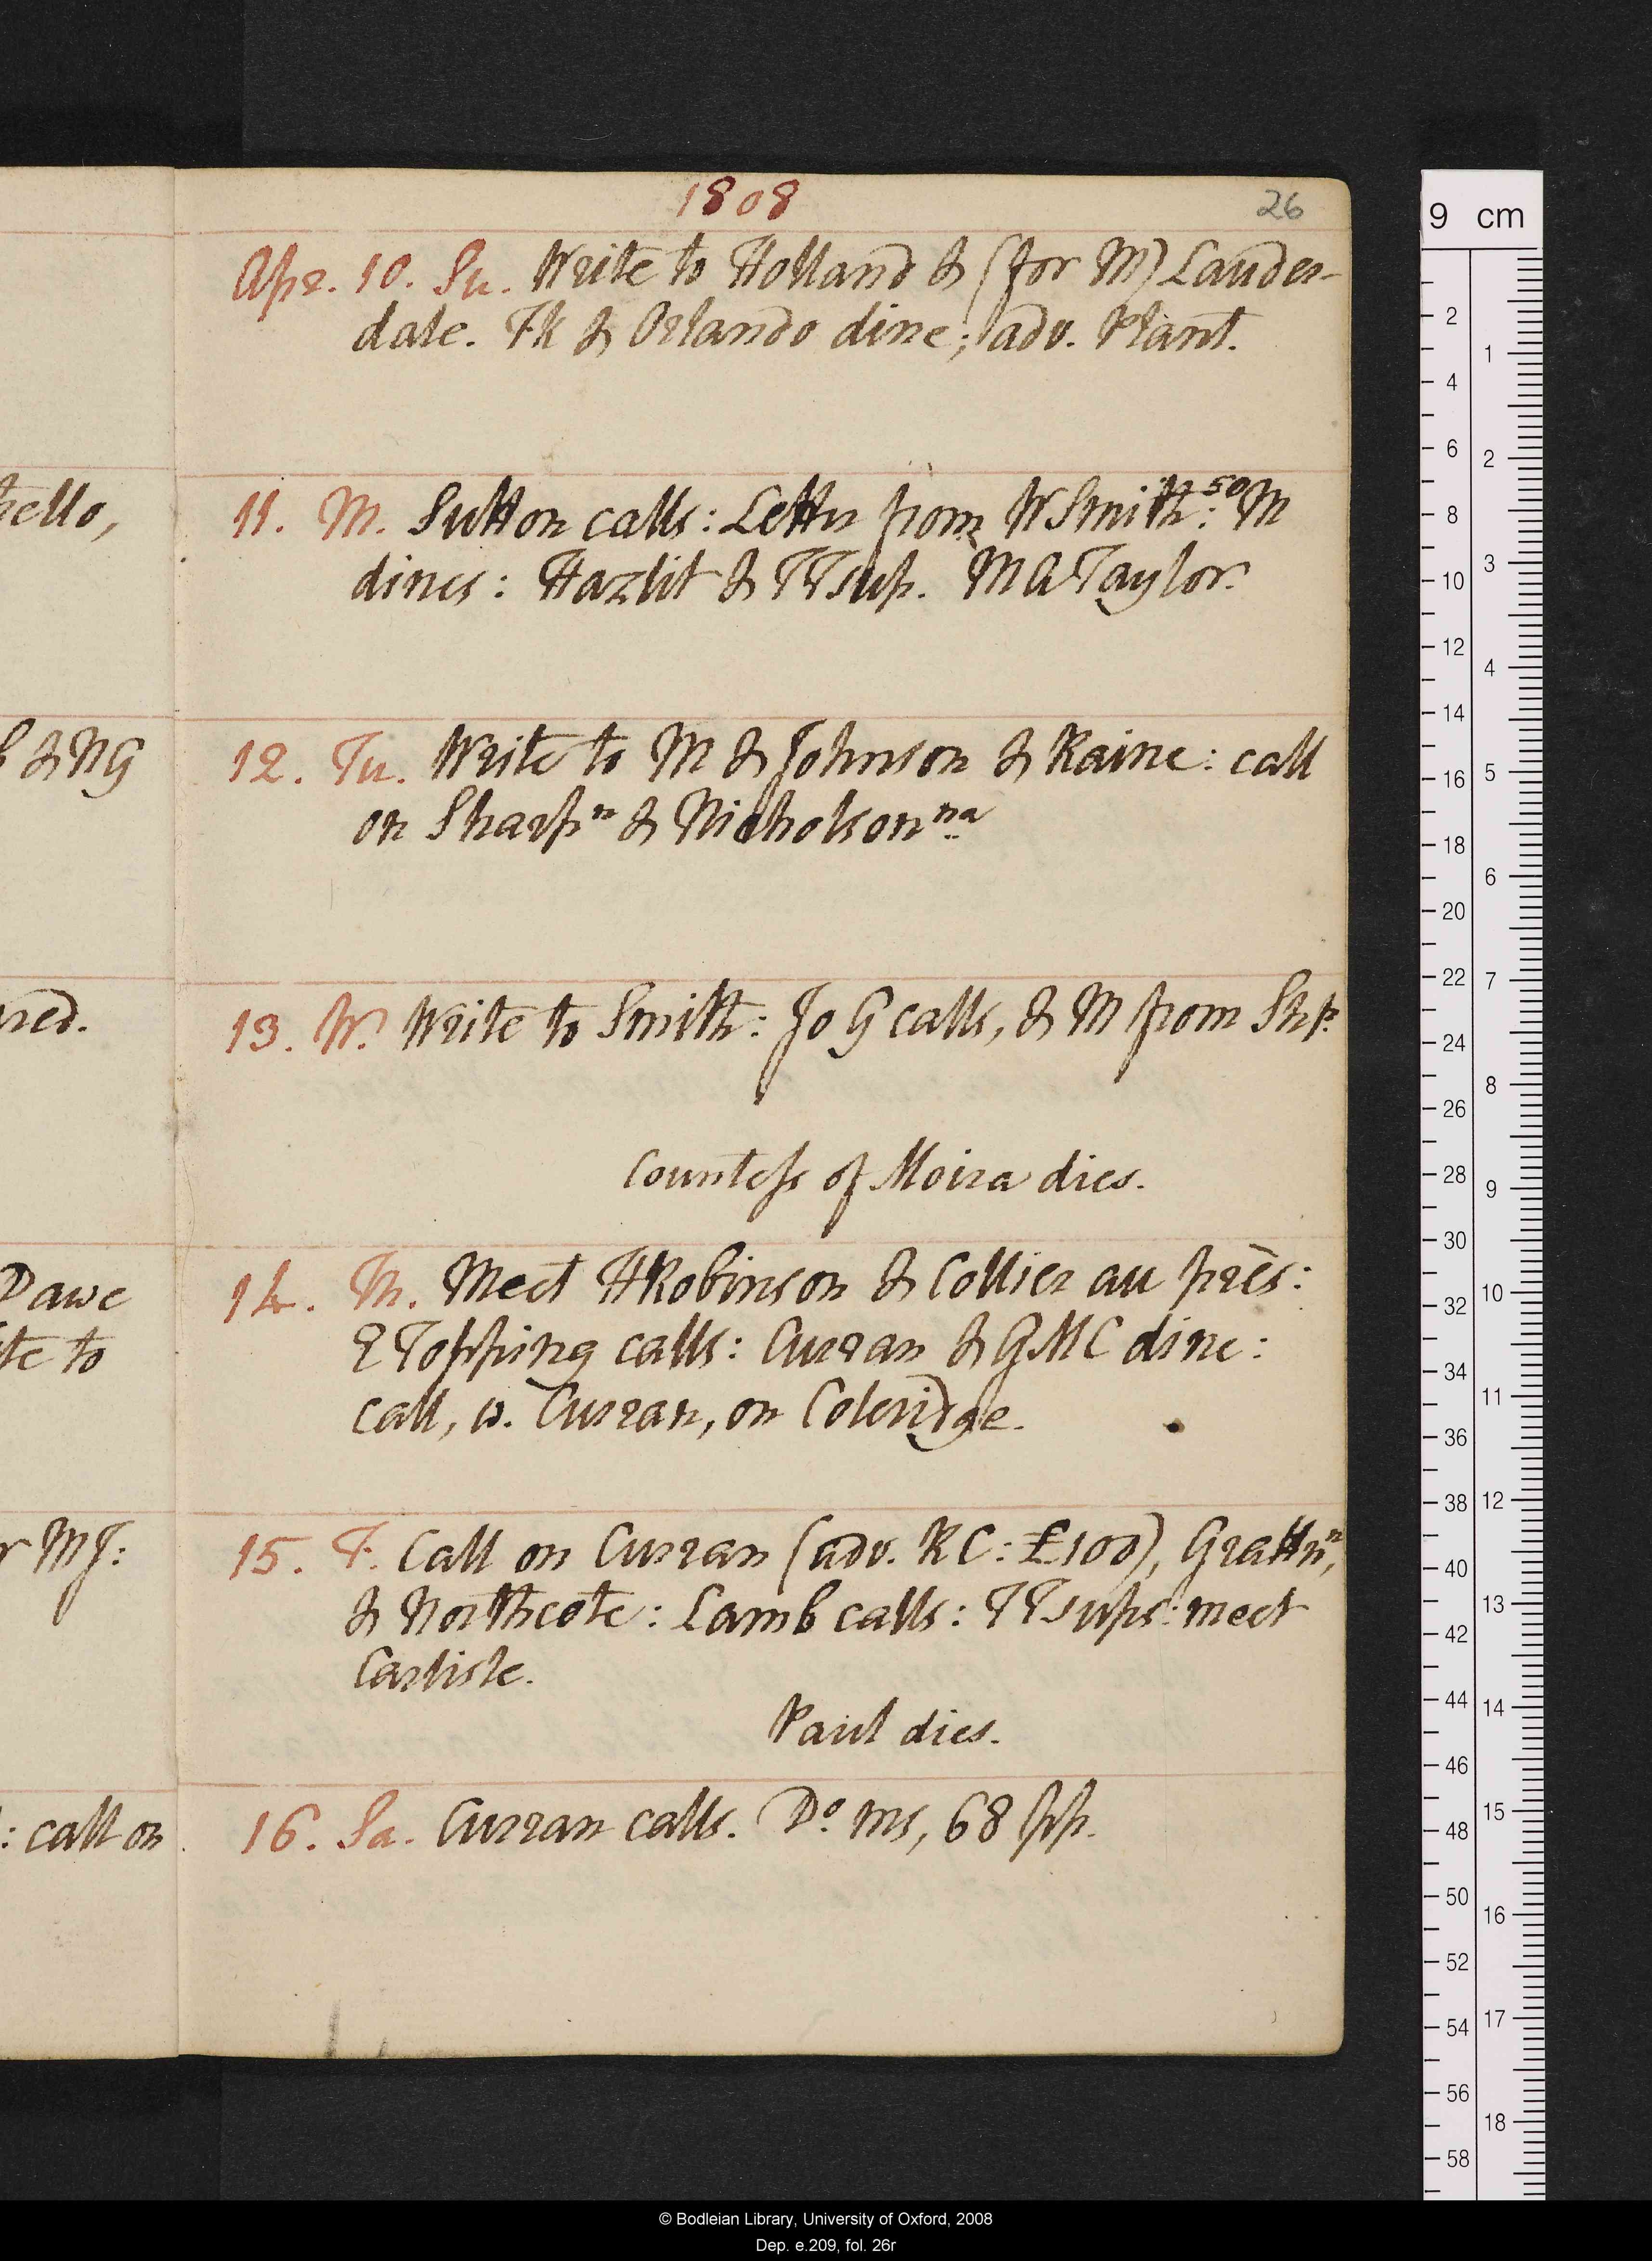 1808
26
Apr. 10. Su. Write to Holland & (for M) Lauder-
dale. Fk & Orlando dine; adv. Plant.
11. M. Sutton calls: Letter from W Smith: 50 M
dines: Hazlit & TT sup. M A Taylor.
12. Tu. Write to M & Johnson & Raine: call
on Sharp n & Nicholson na
13. W. Write to Smith: Jo G calls, & M from Shp.
Countess of Moira dies.
14. Th. Meet H Robinson & Collier au près:
E Topping calls: Curran & GMC dine:
call, w. Curran, on Coleridge.
15. F. Call on Curran (adv. RC: £100), Grattn n,
& Northcote: Lamb calls: TT sups: meet
Carlisle.
Paul dies.
16. Sa. Curran calls. Do. ms, 68 pp.
hello,
& NG
red.
Dawe
te to
r MJ:
: call on
9 cm
2
4
6
8
10
12
14
16
18
20
22
24
26
28
30
32
34
36
38
40
42
44
46
48
50
52
54
56
58
1
2
3
4
5
6
7
8
9
10
11
12
13
14
15
16
17
18
© Bodleian Library, University of Oxford, 2008
Dep. e.209, fol. 26r